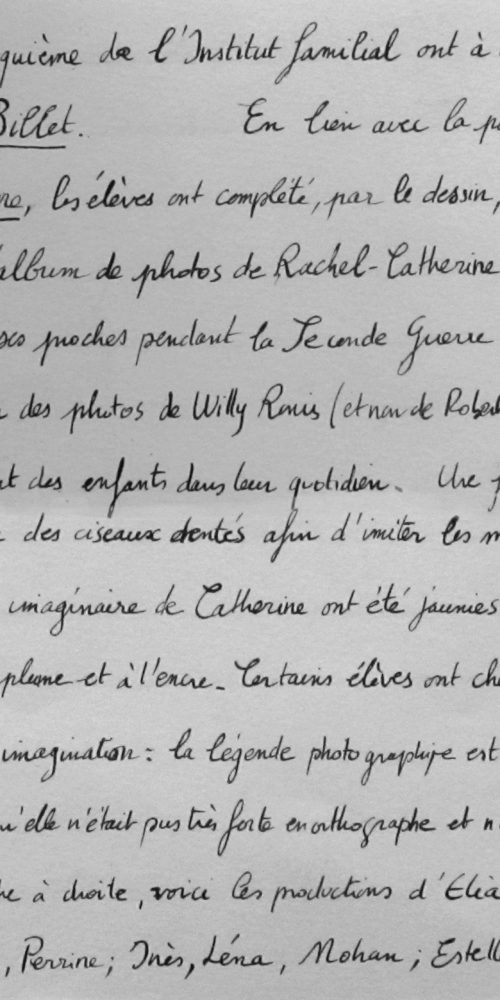 quième de l'Institut familial ont à
Billet. En lien avec la
les élèves ont complété, par le dessin,
album de photos de Rachel-Catherine
ses proches pendant la Seconde Guerre
des photos de Willy Ronis (et non de Robe
des enfants dans leur quotidien. Une
des ciseaux dentés afin d'imiter les m
imaginaire de Catherine ont été jaunies
plume et à l'encre. Certains élèves ont ch
imagination : la légende photographique est
u'elle n'était pas très forte en orthographe et n
he à droite, voici les productions d'Elia
, Perrine ; Inès, Léna, Mohan ; Estell